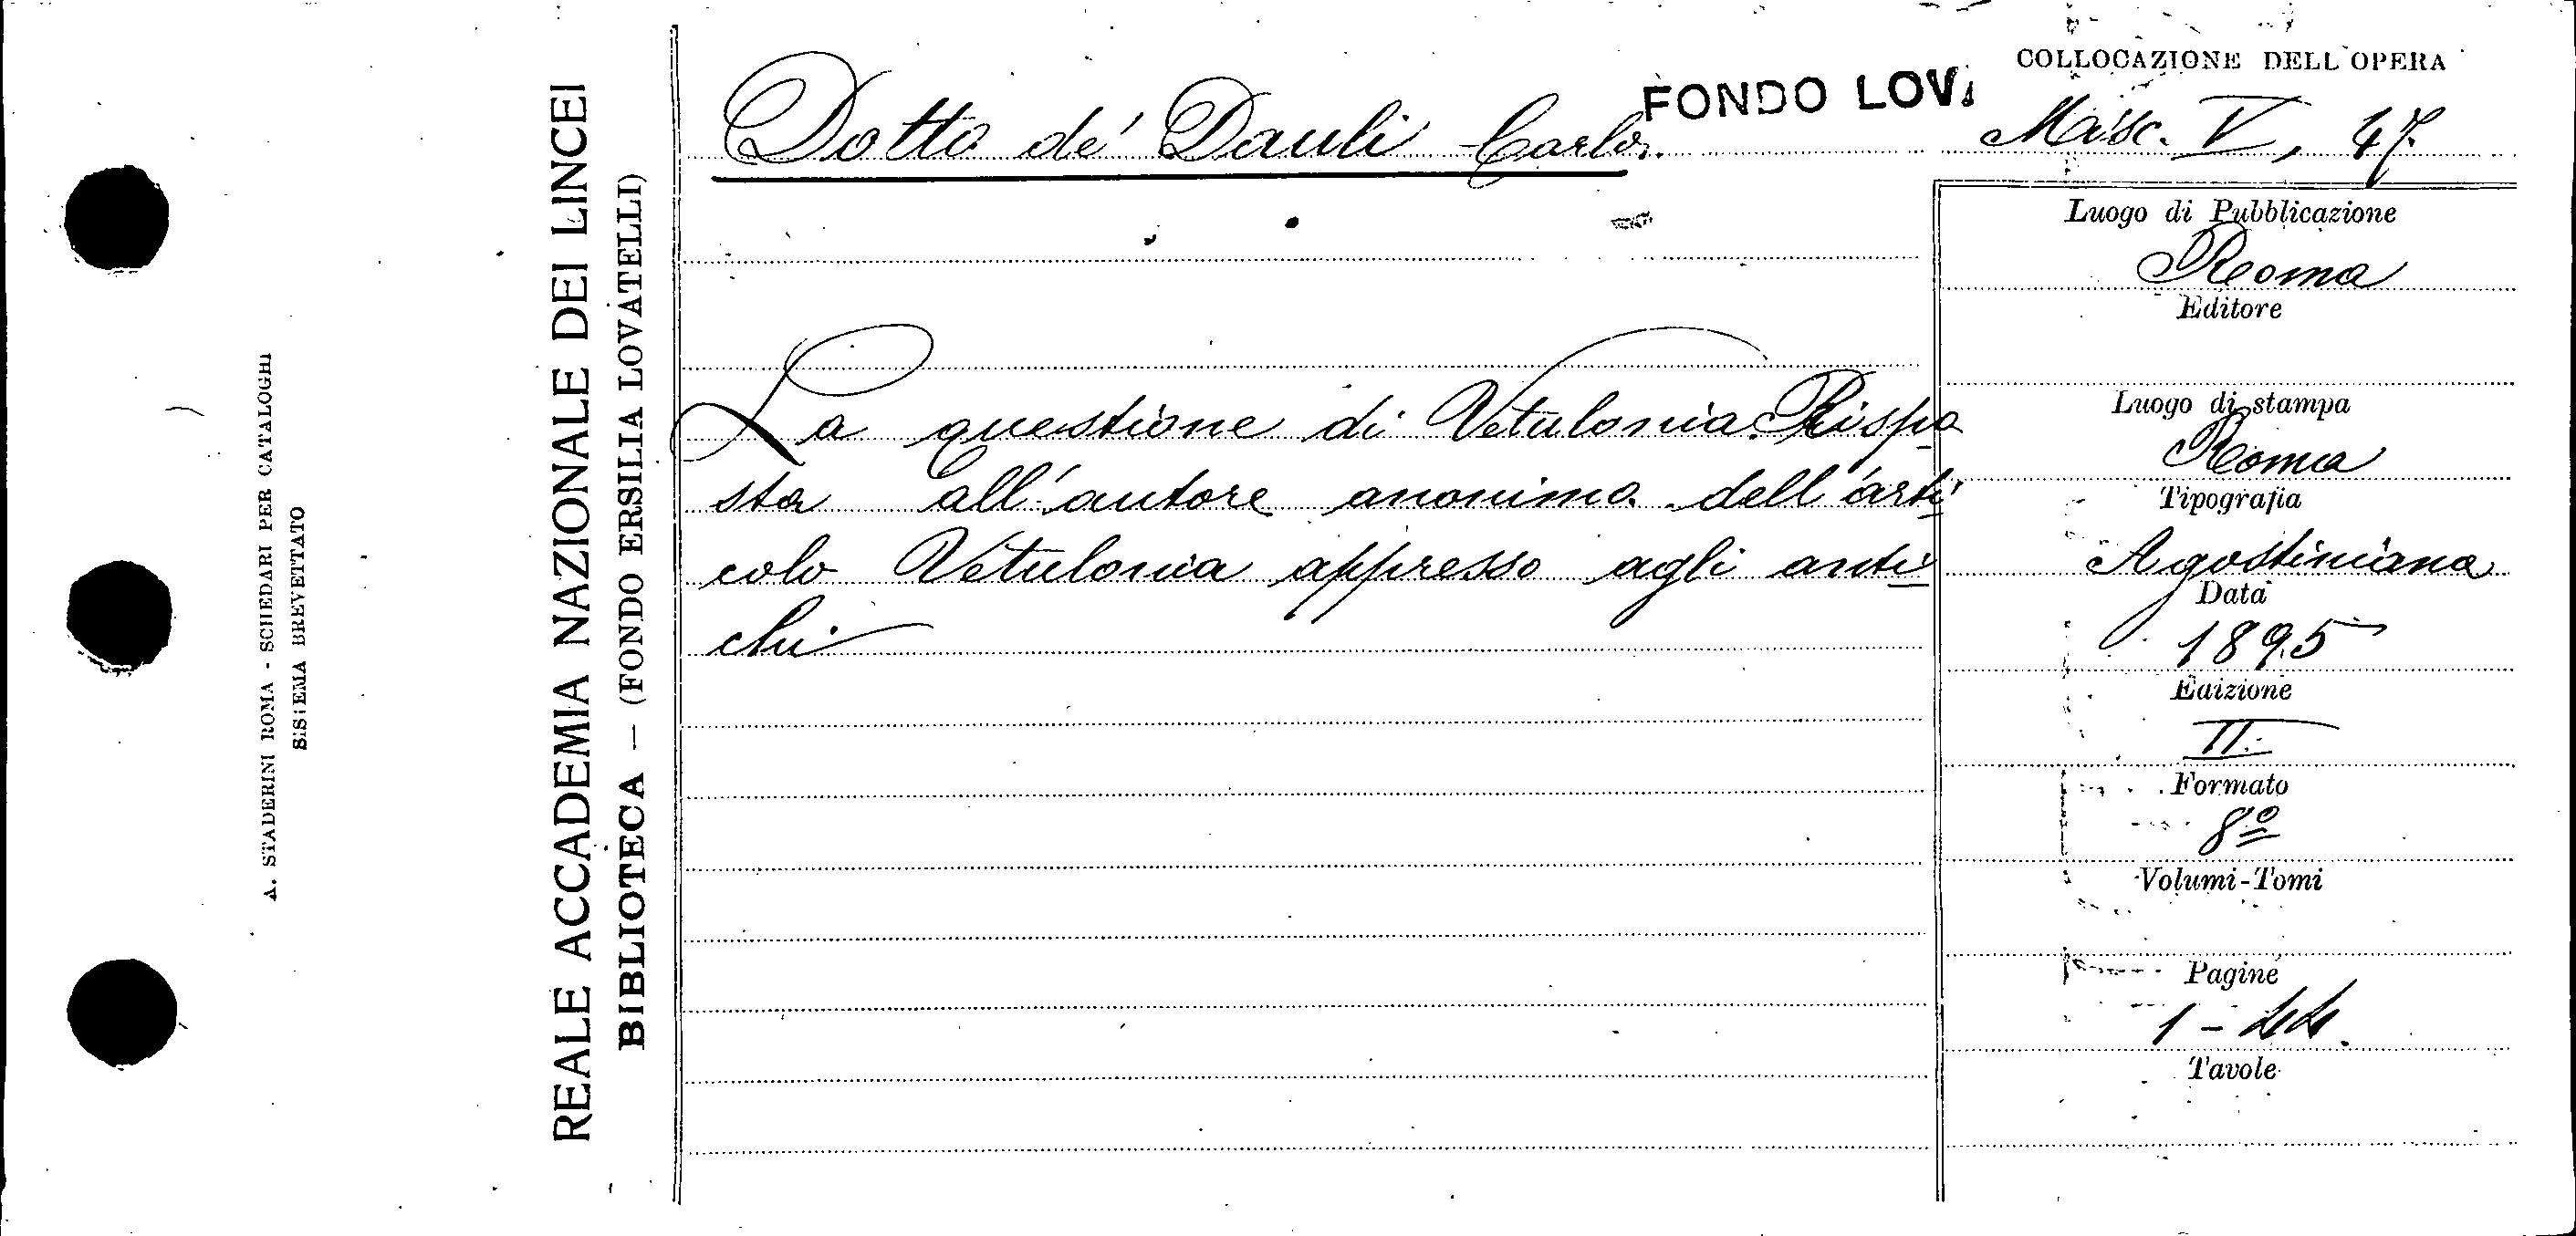 A. STADERINI ROMA - SCHEDARI PER CATALOGHI
SISTEMA BREVETTATO
REALE ACCADEMIA NAZIONALE DEI LINCEI
BIBLIOTECA — (FONDO ERSILIA LOVATELLI)
Dotto de' Dauli Carlo.
FONDO LOV.
COLLOCAZIONE DELL'OPERA
Misc. V, 47
La questione di Vetulonia. Rispo
sta all'autore anonimo dell'arti
colo Vetulonia appresso agli anti
chi
Luogo di Pubblicazione
Roma
Editore
Luogo di stampa
Roma
Tipografia
Agostiniana
Data
1895
Edizione
II.
Formato
8º
Volumi-Tomi
Pagine
1 - 44.
Tavole